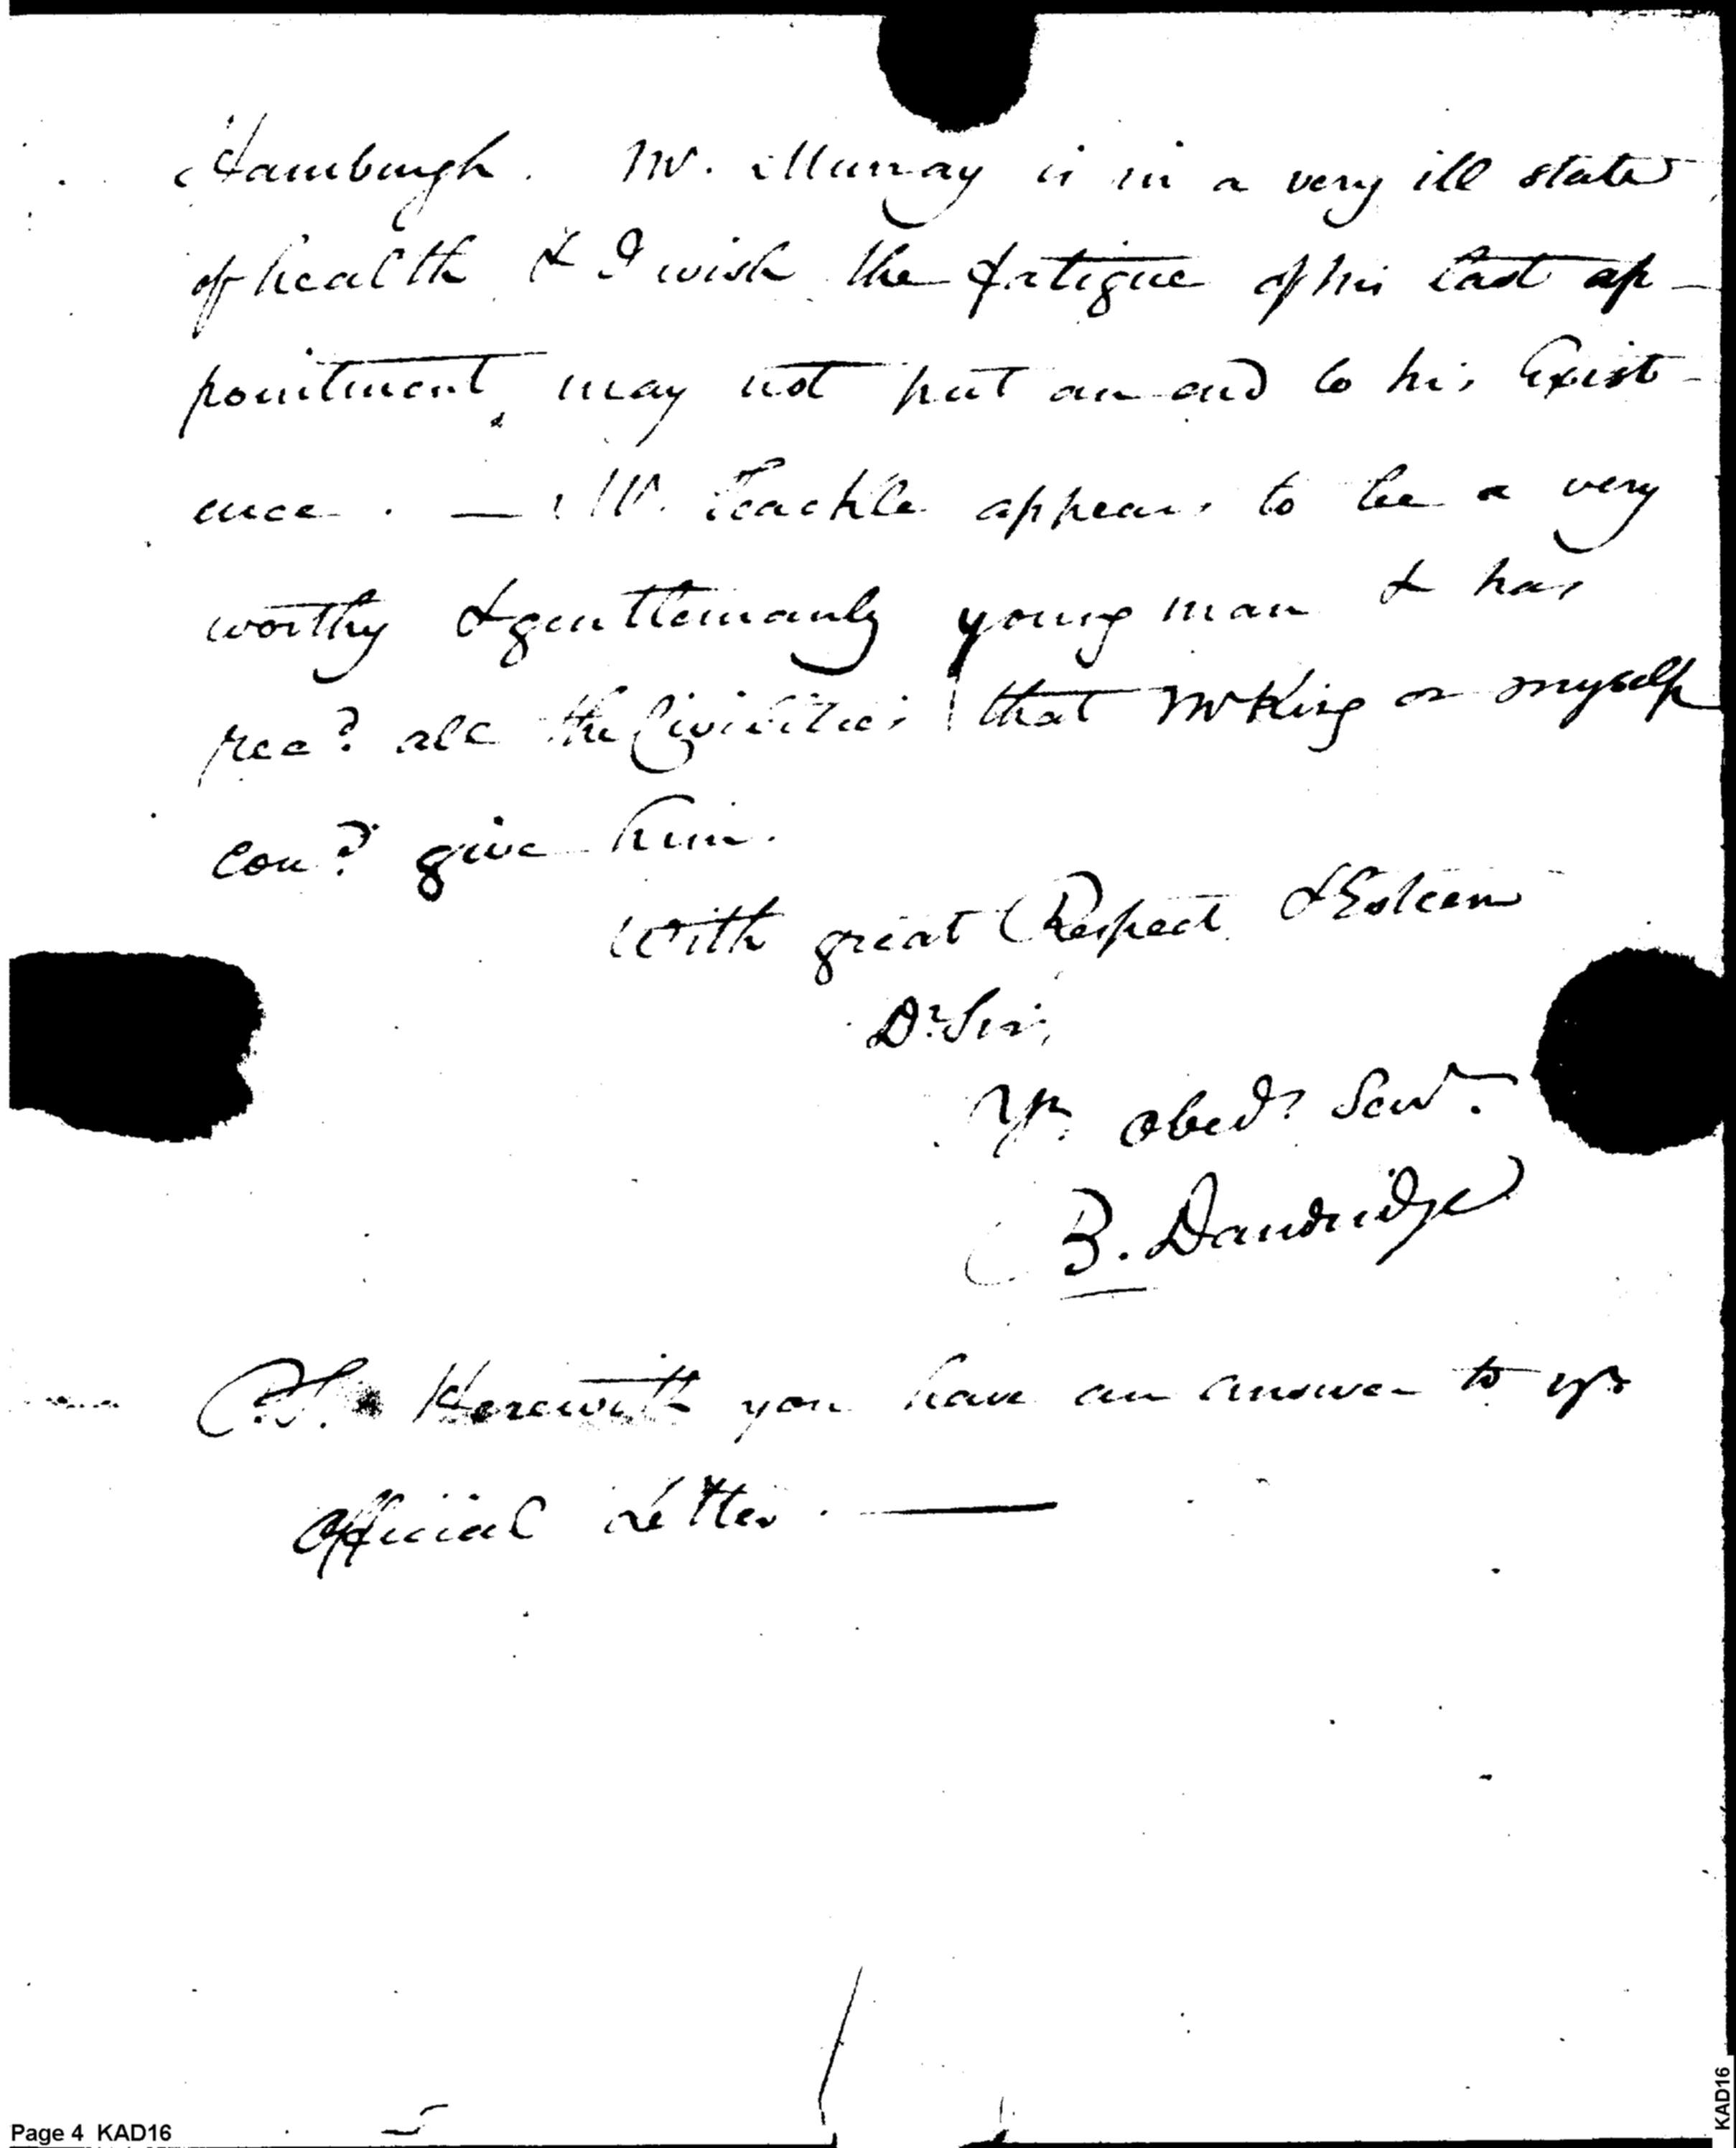 Hamburgh. Mr. Murray is in a very ill state
of health & I wish the fatigue of his last ap-
pointment may not put an end to his Exist-
ence. — Mr. Teackle appears to be a very
worthy & gentlemanly young man & has
recd. all the Civilities that Mr King or myself
coud. give him.
With great Respect & Esteem
Dr. Sir,
Yr. obedt. Servt.
B. Dandridge
P.S. Herewith you have an answer to yr
official Letter. —
Page 4 KAD16
KAD16